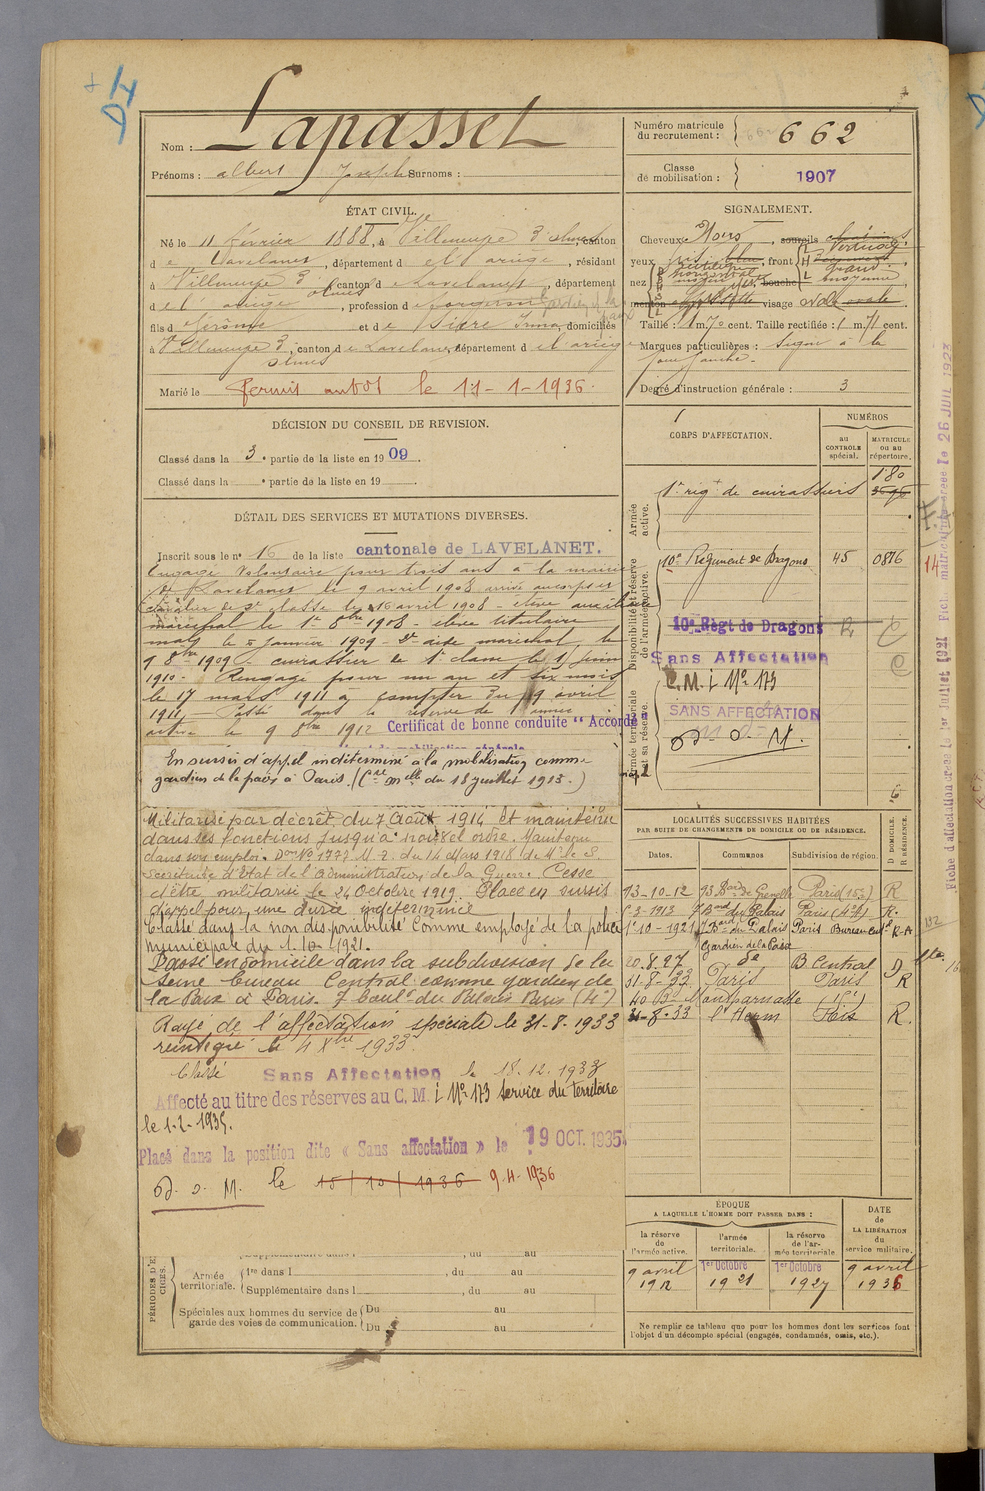 Nom : Lapasset
Prénoms : albert Joseph Surnoms :
Numéro matricule du recrutement : 662
Classe de mobilisation : 1907
ÉTAT CIVIL.
Né le 11 février 1888, à Villeneuve d'olmes, canton
de Lavelanet, département de l'ariège, résidant
à Villeneuve d'olmes, canton de Lavelanet, département
de l'ariège, profession de
fils de Jérôme et de Irma, domiciliés
à Villeneuve d'olmes, canton de Lavelanet, département de l'ariège
Marié le 11-1-1936.
SIGNALEMENT.
Cheveux Noirs, sourcils
yeux , front
nez , bouche
menton visage ovale
Taille : 1 m. 70 cent. Taille rectifiée : 1 m. 71 cent.
Marques particulières : à la
joue gauche.
Degré d'instruction générale : 3
DÉCISION DU CONSEIL DE REVISION.
Classé dans la 3e partie de la liste en 1909.
Classé dans la e partie de la liste en 19
DÉTAIL DES SERVICES ET MUTATIONS DIVERSES.
Inscrit sous le n° 16 de la liste cantonale de LAVELANET.
Engagé volontaire pour trois ans à la mairie
de Lavelanet le 9 avril 1908 arrivé au corps et
cavalier de 2e classe le 16 avril 1908 - élève auxiliaire
maréchal le 1er 8bre 1908 - élève titulaire
le 5 janvier 1909 - 2e aide maréchal le
9 8bre 1909 - cuirassier de 1e classe le 1 juin
1910 - Rengagé pour un an et six mois
le 17 mars 1911 à compter du 9 avril
1911 - Passé dans la réserve de l'armée
active le 9 8bre 1912 Certificat de bonne conduite " Accordé "
En sursis d'appel indéterminé à la mobilisation comme
gardien de la paix à Paris. (Cre Melle du 18 juillet 1913.)
Militarisé par décret du 7 Août 1914 et maintenu
dans ses fonctions jusqu'à nouvel ordre. Maintenu
dans son emploi. Don No 1777 M.2. du 14 Mars 1918 de Mr le S.
Secrétaire d'État de l'Administration de la Guerre. Cesse
d'être militarisé le 24 Octobre 1919. Placé en sursis
d'appel pour une durée indéterminée
Classé dans la non disponibilité comme employé de la police
municipale du 1.10.1921.
Passé en domicile dans la subdivision de la
Seine bureau Central comme gardien de
la Paix à Paris. 7 boul. du Palais Paris (4e)
Rayé de l'affectation spéciale le 31-8-1933
réintégré le 4 Xbre 1933
Classé Sans Affectation le 18.12.1933
Affecté au titre des réserves au C. M. i No 173 service du territoire
le 1-2-1935.
Placé dans la position dite « Sans affectation » le 19 OCT. 1935
D. o. M. le 15/10/1936 9-4-1936
CORPS D'AFFECTATION.
NUMÉROS
au CONTRÔLE spécial.
MATRICULE ou au répertoire.
Armée active.
1er régt de cuirassiers 180
Disponibilité et réserve de l'armée active.
10e Régiment de Dragons 45 0876
10e Règt de Dragons
Sans Affectation
C.M. i No 173
Armée territoriale et sa réserve.
SANS AFFECTATION
D o M.
LOCALITÉS SUCCESSIVES HABITÉES
PAR SUITE DE CHANGEMENTS DE DOMICILE OU DE RÉSIDENCE.
Dates. Communes Subdivision de région. D DOMICILE. R RÉSIDENCE.
13-10-12 93 Bard de Grenelle Paris (15e) R
1-3-1913 7 Band du Palais Paris (4e) R.
1er 10-1921 7 Bard du Palais Paris Bureau Cent R-A
Gardien de la Paix
20.8.27 do B Central D
31-8-33 Paris Paris R
40 Bd Montparnasse
31-8-33 l'Herm Foix R.
ÉPOQUE
A LAQUELLE L'HOMME DOIT PASSER DANS :
DATE de LA LIBÉRATION du service militaire.
la réserve de l'armée active. l'armée territoriale. la réserve de l'armée territoriale
9 avril 1912 1er Octobre 1921 1er Octobre 1927 9 avril 1936
Ne remplir ce tableau que pour les hommes dont les services font
l'objet d'un décompte spécial (engagés, condamnés, omis, etc.).
PÉRIODES D'EXERCICES.
Supplémentaire dans l , du au
Armée territoriale.
1re dans l , du au
Supplémentaire dans l , du au
Spéciales aux hommes du service de
garde des voies de communication.
Du au
Du au
Fiche d'affectation créée le 1er Juillet 1921 Fich. matricule créée le 26 JUIL 1923